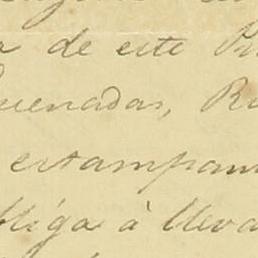 a de este Pu
Quenadas, R
estampan
bliga à lleva